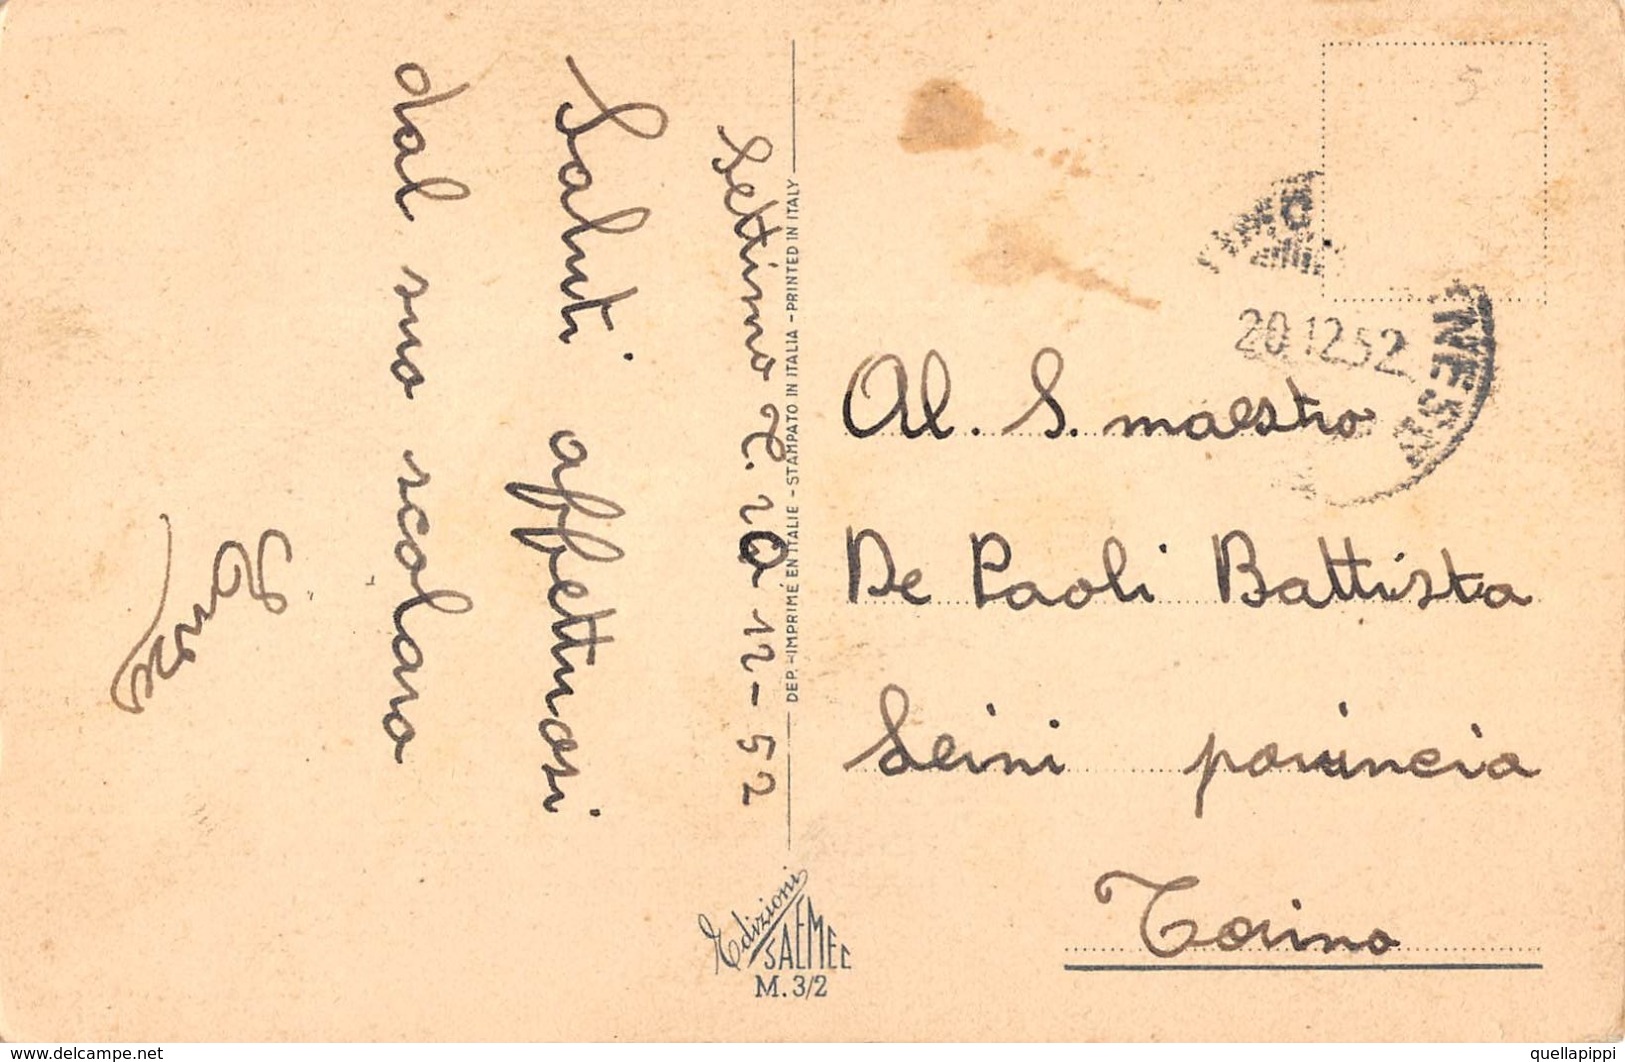 Settimo T. 20 12-52
Saluti affettuosi
dal suo scolaro
DEP. - IMPRIMÉ EN ITALIE - STAMPATO IN ITALIA - PRINTED IN ITALY
Edizioni
SAEMEC
M. 3/2
5
20.12.52
Al. S. maestro
De Paoli Battista
Leini provincia
Torino
www.delcampe.net
quellapippi